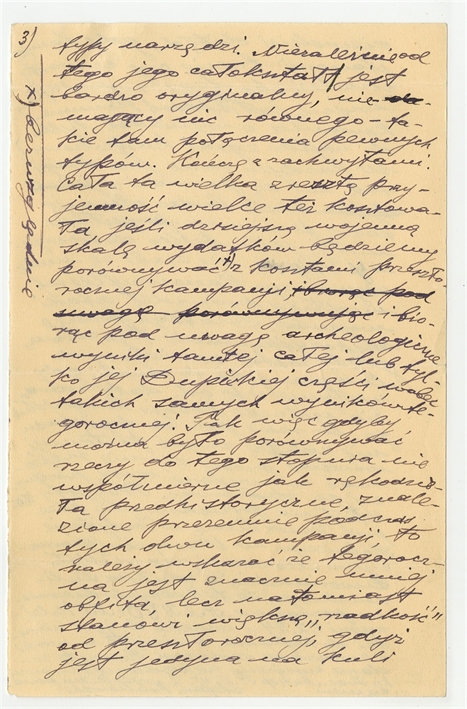 3)
typy narzędzi. Niezależnie od
tego jego całokształt jest
bardzo oryginalny, nie
mający nic równego - ta-
kie tam połączenia pewnych
typów. Kończę z zachwytami.
Cała ta wielka zresztą przy-
jemność wielce też kosztowa-
ła jeśli dzisiejszą wojenną
skalę wydatków będziemy
porównywać x) z kosztami przeszło-
rocznej kampanji (biorąc pod
uwagę porównywując i bio-
rąc pod uwagę archeologiczne
wyniki tamtej całej lub tyl-
ko jej Dupickiej części wobec
takich samych wyników te-
gorocznej! Tak więc gdyby
można było porównywać
rzeczy do tego stopnia nie
współmierne jak rękodzie-
ła predhistoryczne, znale-
zione przezemnie podczas
tych dwu kampanji, to
należy wskazać że tegorocz-
na jest znacznie mniej
obfita, lecz natomiast
stanowi większą "rzadkość"
od przeszłorocznej, gdyż
jest jedyna na kuli
x) bezwzględnie